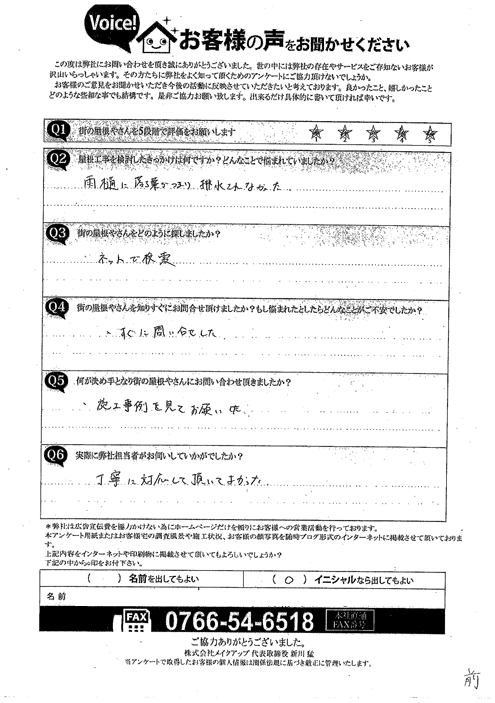 Voice!
お客様の声をお聞かせください
この度は弊社にお問い合わせを頂き誠にありがとうございました。世の中には弊社の存在やサービスをご存知ないお客様が
沢山いらっしゃいます。その方たちに弊社をよく知って頂くためのアンケートにご協力頂けないでしょうか。
お客様のご意見をお聞かせいただき今後の活動に反映させていただきたいと考えております。良かったこと、嬉しかったこと
どのような些細な事でも結構です。是非ご協力お願い致します。出来るだけ具体的に書いて頂ければ幸いです。
Q1 街の屋根やさんを5段階で評価をお願いします ★ ★ ★ ★ ★
Q2 屋根工事を検討したきっかけは何ですか?どんなことで悩まれていましたか?
雨樋に落葉がつまり 排水されなかった
Q3 街の屋根やさんをどのように探しましたか?
・ネットで検索
Q4 街の屋根やさんを知りすぐにお問合せ頂けましたか?もし悩まれたとしたらどんなことがご不安でしたか?
・すぐに問い合せした
Q5 何が決め手となり街の屋根やさんにお問い合わせ頂きましたか?
・施工事例を見てお願いした
Q6 実際に弊社担当者がお伺いしていかがでしたか?
丁寧に対応して頂いてよかった
*弊社は広告宣伝費を極力かけない為にホームページだけを頼りにお客様への営業活動を行っております。
本アンケート用紙またはお客様宅の調査風景や施工状況、お客様の顔写真を随時ブログ形式のインターネットに掲載させて頂いておりま
す。
上記内容をインターネットや印刷物に掲載させて頂いてもよろしいでしょうか?
下記の中から○印をお付下さい。
( ) 名前を出してもよい ( ○ ) イニシャルなら出してもよい
名前
FAX 0766-54-6518 本社直通 FAX番号
ご協力ありがとうございました。
株式会社メイクアップ 代表取締役 新川 猛
当アンケートで取得したお客様の個人情報は関係法規に基づき厳正に管理いたします。
前